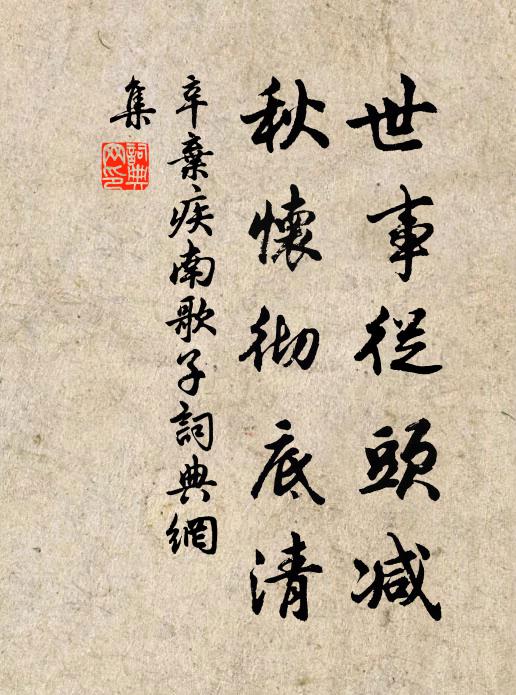 世事從頭减
秋懷彻底清
辛棄疾南歌子詞典網
集
詞典网印